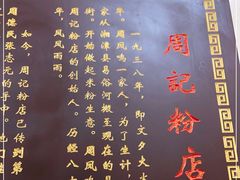 周記粉店
一九三八年，即文夕大火
年。周凤鸣一家人，为了生计，
家从湘潭县易俗河搬至现在的
街。开始做起米粉生意。周凤
周记粉店的创始人。历经八
年，风风雨雨。
如今，周记粉店已传到第
周德民张志元的手中。他们